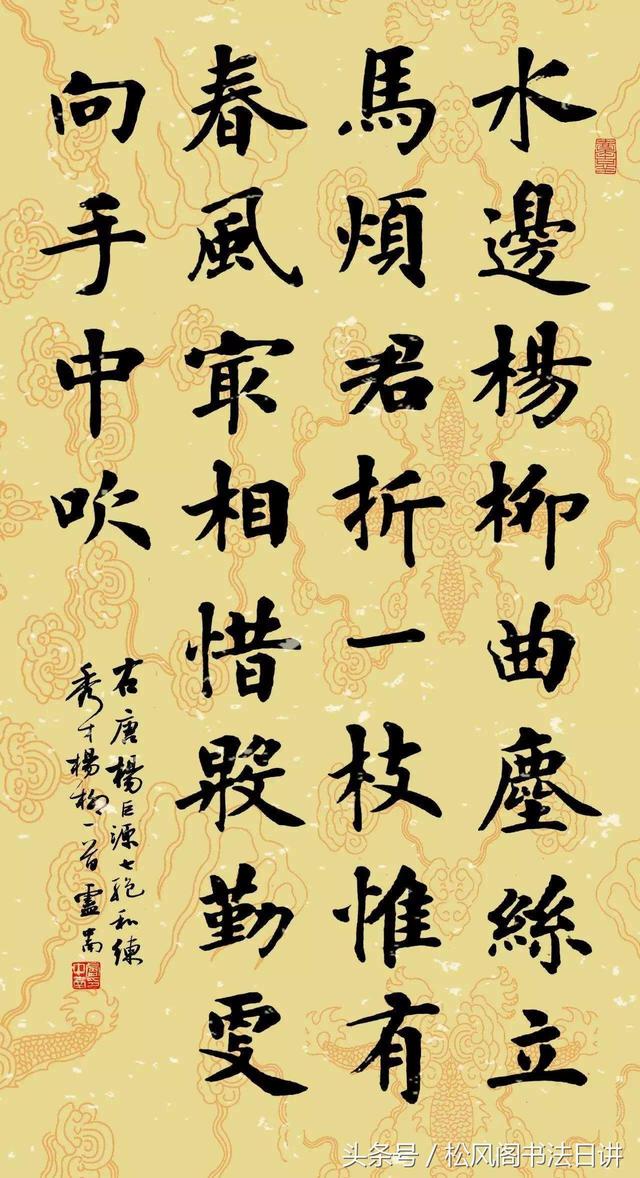 水邊楊柳曲塵絲立
馬煩君折一枝惟有
春風最相惜殷勤更
向手中吹
右唐楊巨源七絕和練
秀才楊柳一首盧中南
头条号/松风阁书法日讲